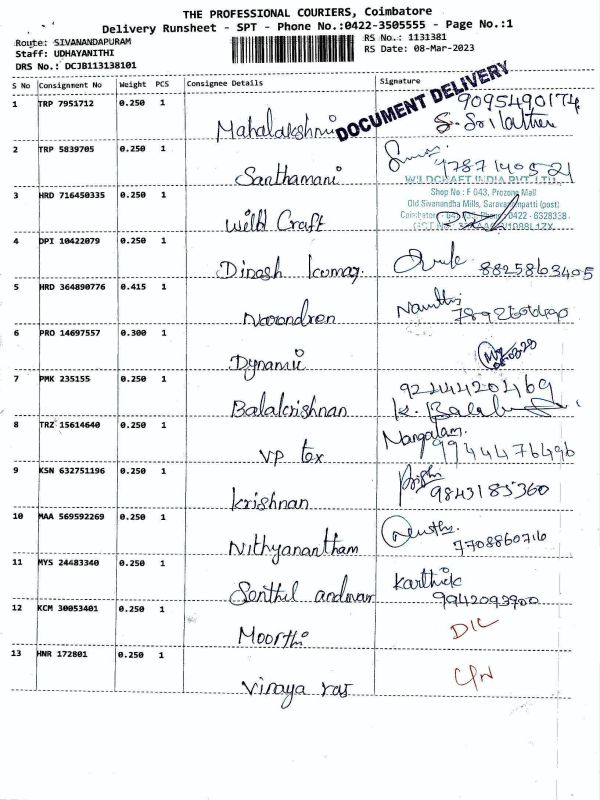 THE PROFESSIONAL COURIERS, Coimbatore
Delivery Runsheet - SPT - Phone No.:0422-3505555 - Page No.:1
Route: SIVANANDAPURAM
RS No.: 1131381
Staff: UDHAYANITHI
RS Date: 08-Mar-2023
DRS No.: DCJB113138101
S No Consignment No Weight PCS Consignee Details Signature
DOCUMENT DELIVERY
1 TRP 7951712 0.250 1 Mahalakshmi 9095490174
2 TRP 5839705 0.250 1 Santhamani
WILDCRAFT INDIA PVT LTD
Shop No : F 043, Prozone Mall
Old Sivanandha Mills, (post)
3 HRD 716450335 0.250 1 Wild Craft
4 DPI 10422079 0.250 1 Dinesh Kumar 8825863405
5 HRD 364890776 0.415 1 Narendren
6 PRO 14697557 0.300 1 Dynamic
7 PMK 235155 0.250 1 Balakrishnan
8 TRZ 15614640 0.250 1 VP tex Mangalam 9944476496
9 KSN 632751196 0.250 1 krishnan 9843185360
10 MAA 569592269 0.250 1 Nithyanantham 7708860716
11 MYS 24483340 0.250 1 Senthil andavar Karthick
12 KCM 30053401 0.250 1 Moorthi D/L
13 HNR 172801 0.250 1 Vinaya raj